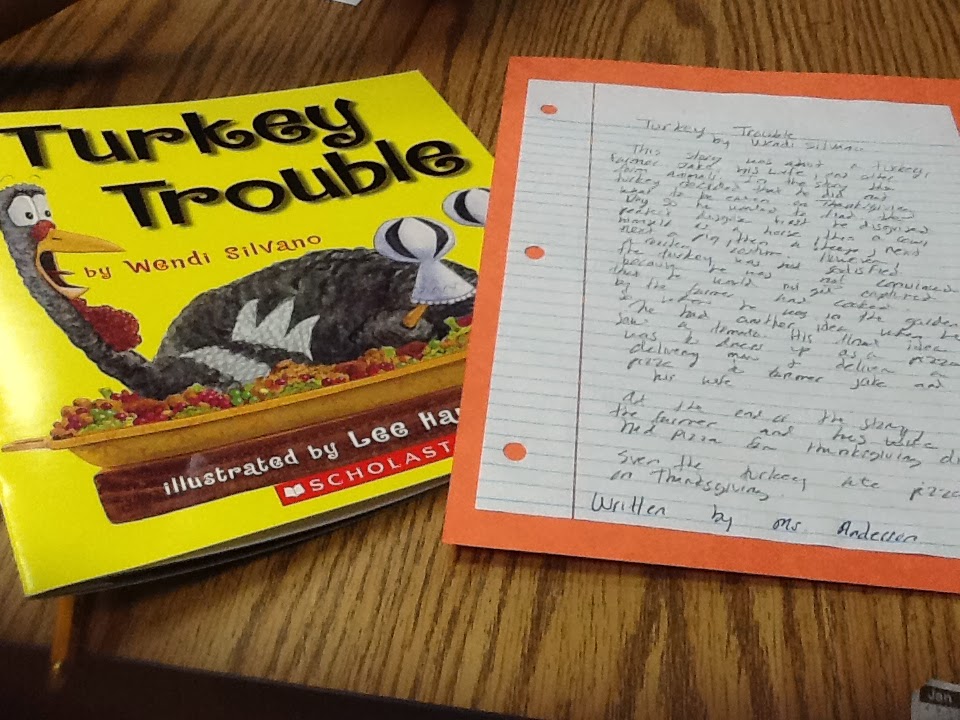 Turkey
Trouble
by Wendi Silvano
illustrated by Lee Ha
SCHOLAST
Turkey Trouble
by Wendi Silvano
This story was about a turkey,
farmer Jake, his wife, and other
farm animals. In the story the
turkey decided that he did not
want to be eaten on Thanksgiving
Day so he wanted to find the
perfect disguise. First he disguised
himself as a horse, then a cow,
next a pig, then a sheep, next
a rooster costume. However
the turkey was not satisfied
because he was not convinced
that he would not get captured
by the farmer and cooked
he was in the garden
He had another idea when he
saw a tomato. His final idea
was to dress up as a pizza
delivery man & deliver a
pizza to farmer Jake and
his wife
At the end of the story,
the farmer and his wife
had pizza for thanksgiving
Even the turkey ate pizza
on Thanksgiving.
Written by Ms. Anderson
Jan